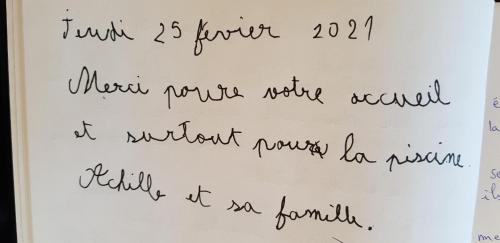 Jeudi 25 févier 2021
Merci poure votre accueil
et surtout pour la piscine.
Achille et sa famille.
é
la
se
ils
me